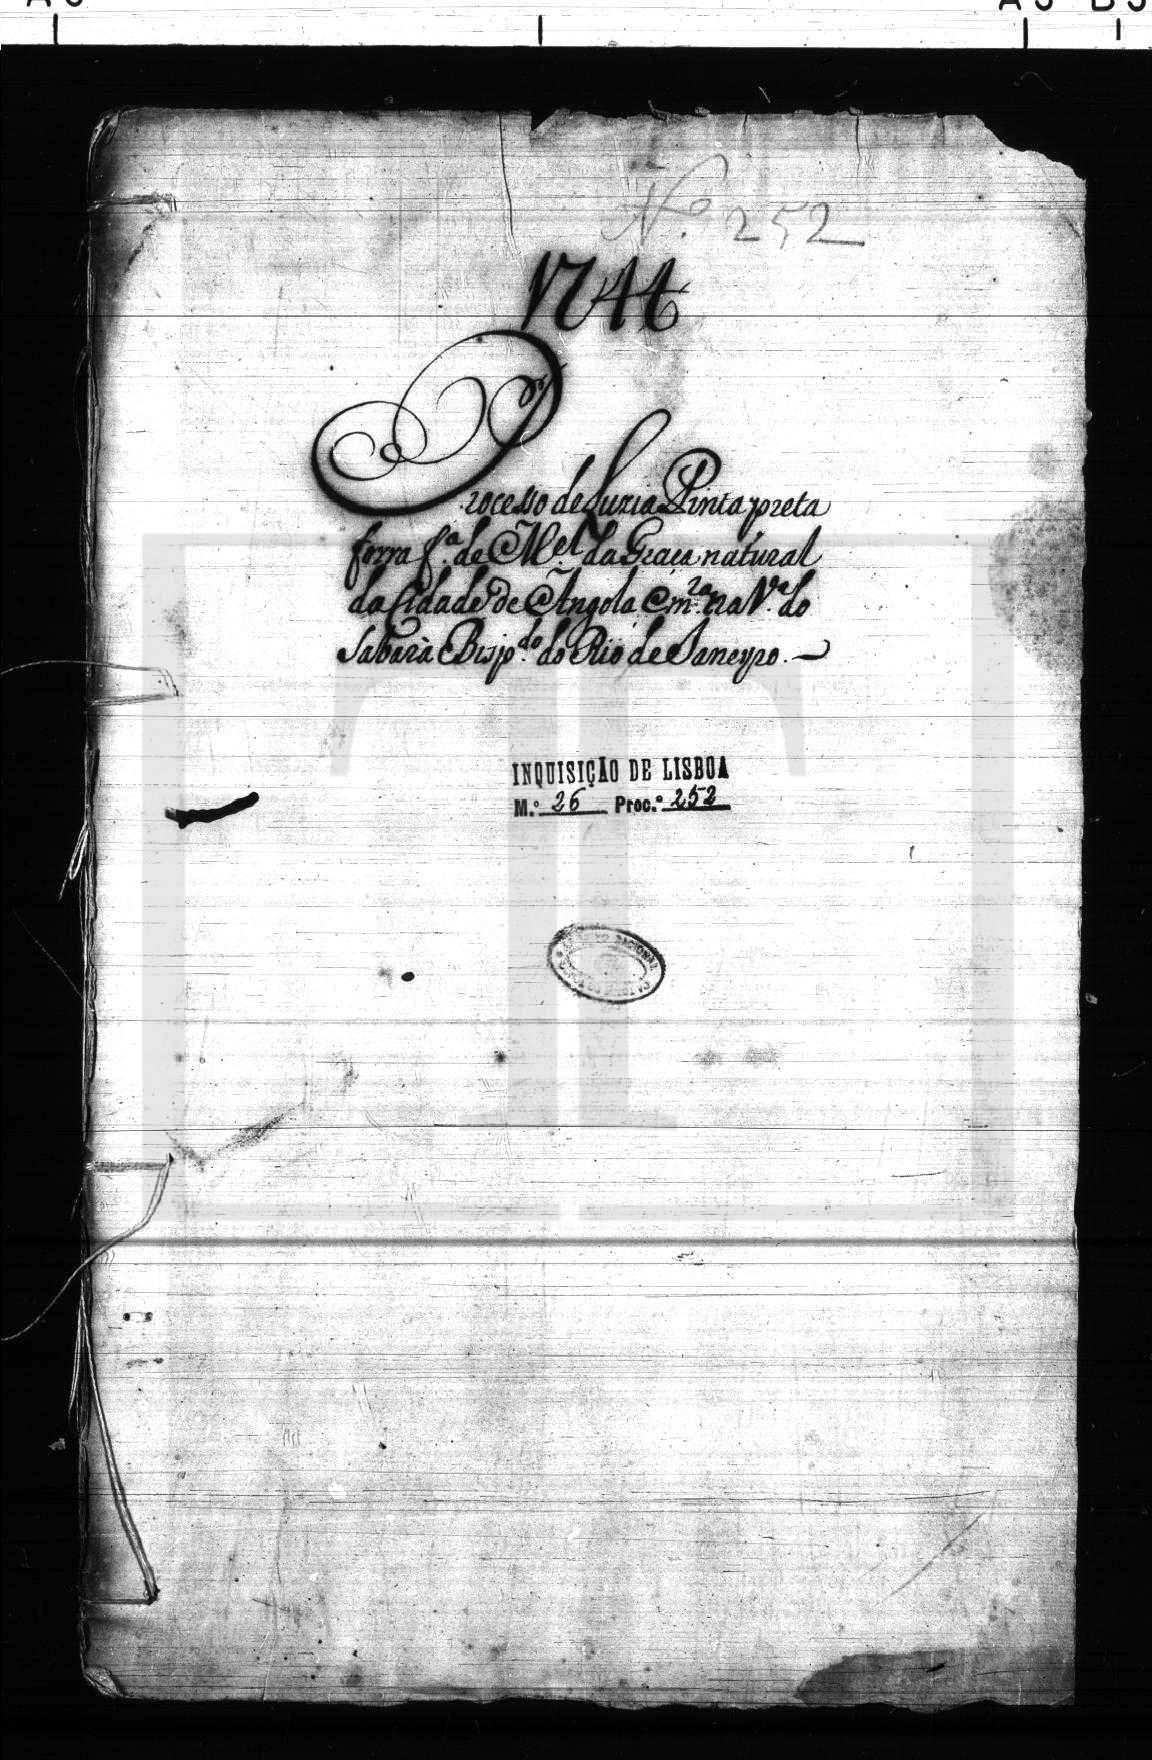 N.º 252
1744
Processo de Luzia Pinta preta
forra f.ª de M.el da Graça natural
da Cidade de Angola e m.ra na V.ª do
Sabarà Bisp.do do Rio de Janeyro. —
INQUISIÇÃO DE LISBOA
M.º 26 Proc.º 252